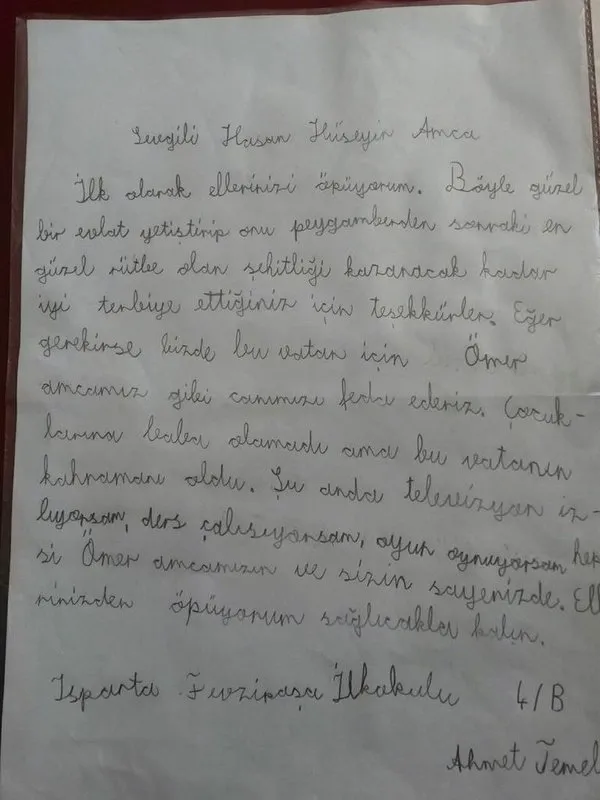 Sevgili Hasan Hüseyin Amca
İlk olarak ellerinizi öpüyorum. Böyle güzel
bir evlat yetiştirip onu peygamberden sonraki en
güzel rütbe olan şehitliği kazanacak kadar
iyi terbiye ettiğiniz için teşekkürler. Eğer
gerekirse bizde bu vatan için Ömer
amcamız gibi canımızı feda ederiz. Çocuk-
larına baba olamadı ama bu vatanın
kahramanı oldu. Şu anda televizyon iz-
liyorsam, ders çalışıyorsam, oyun oynuyorsam hep
si Ömer amcamızın ve sizin sayenizde. Elle
rinizden öpüyorum sağlıcakla kalın.
Isparta Fevzipaşa İlkokulu 4/B
Ahmet Temel